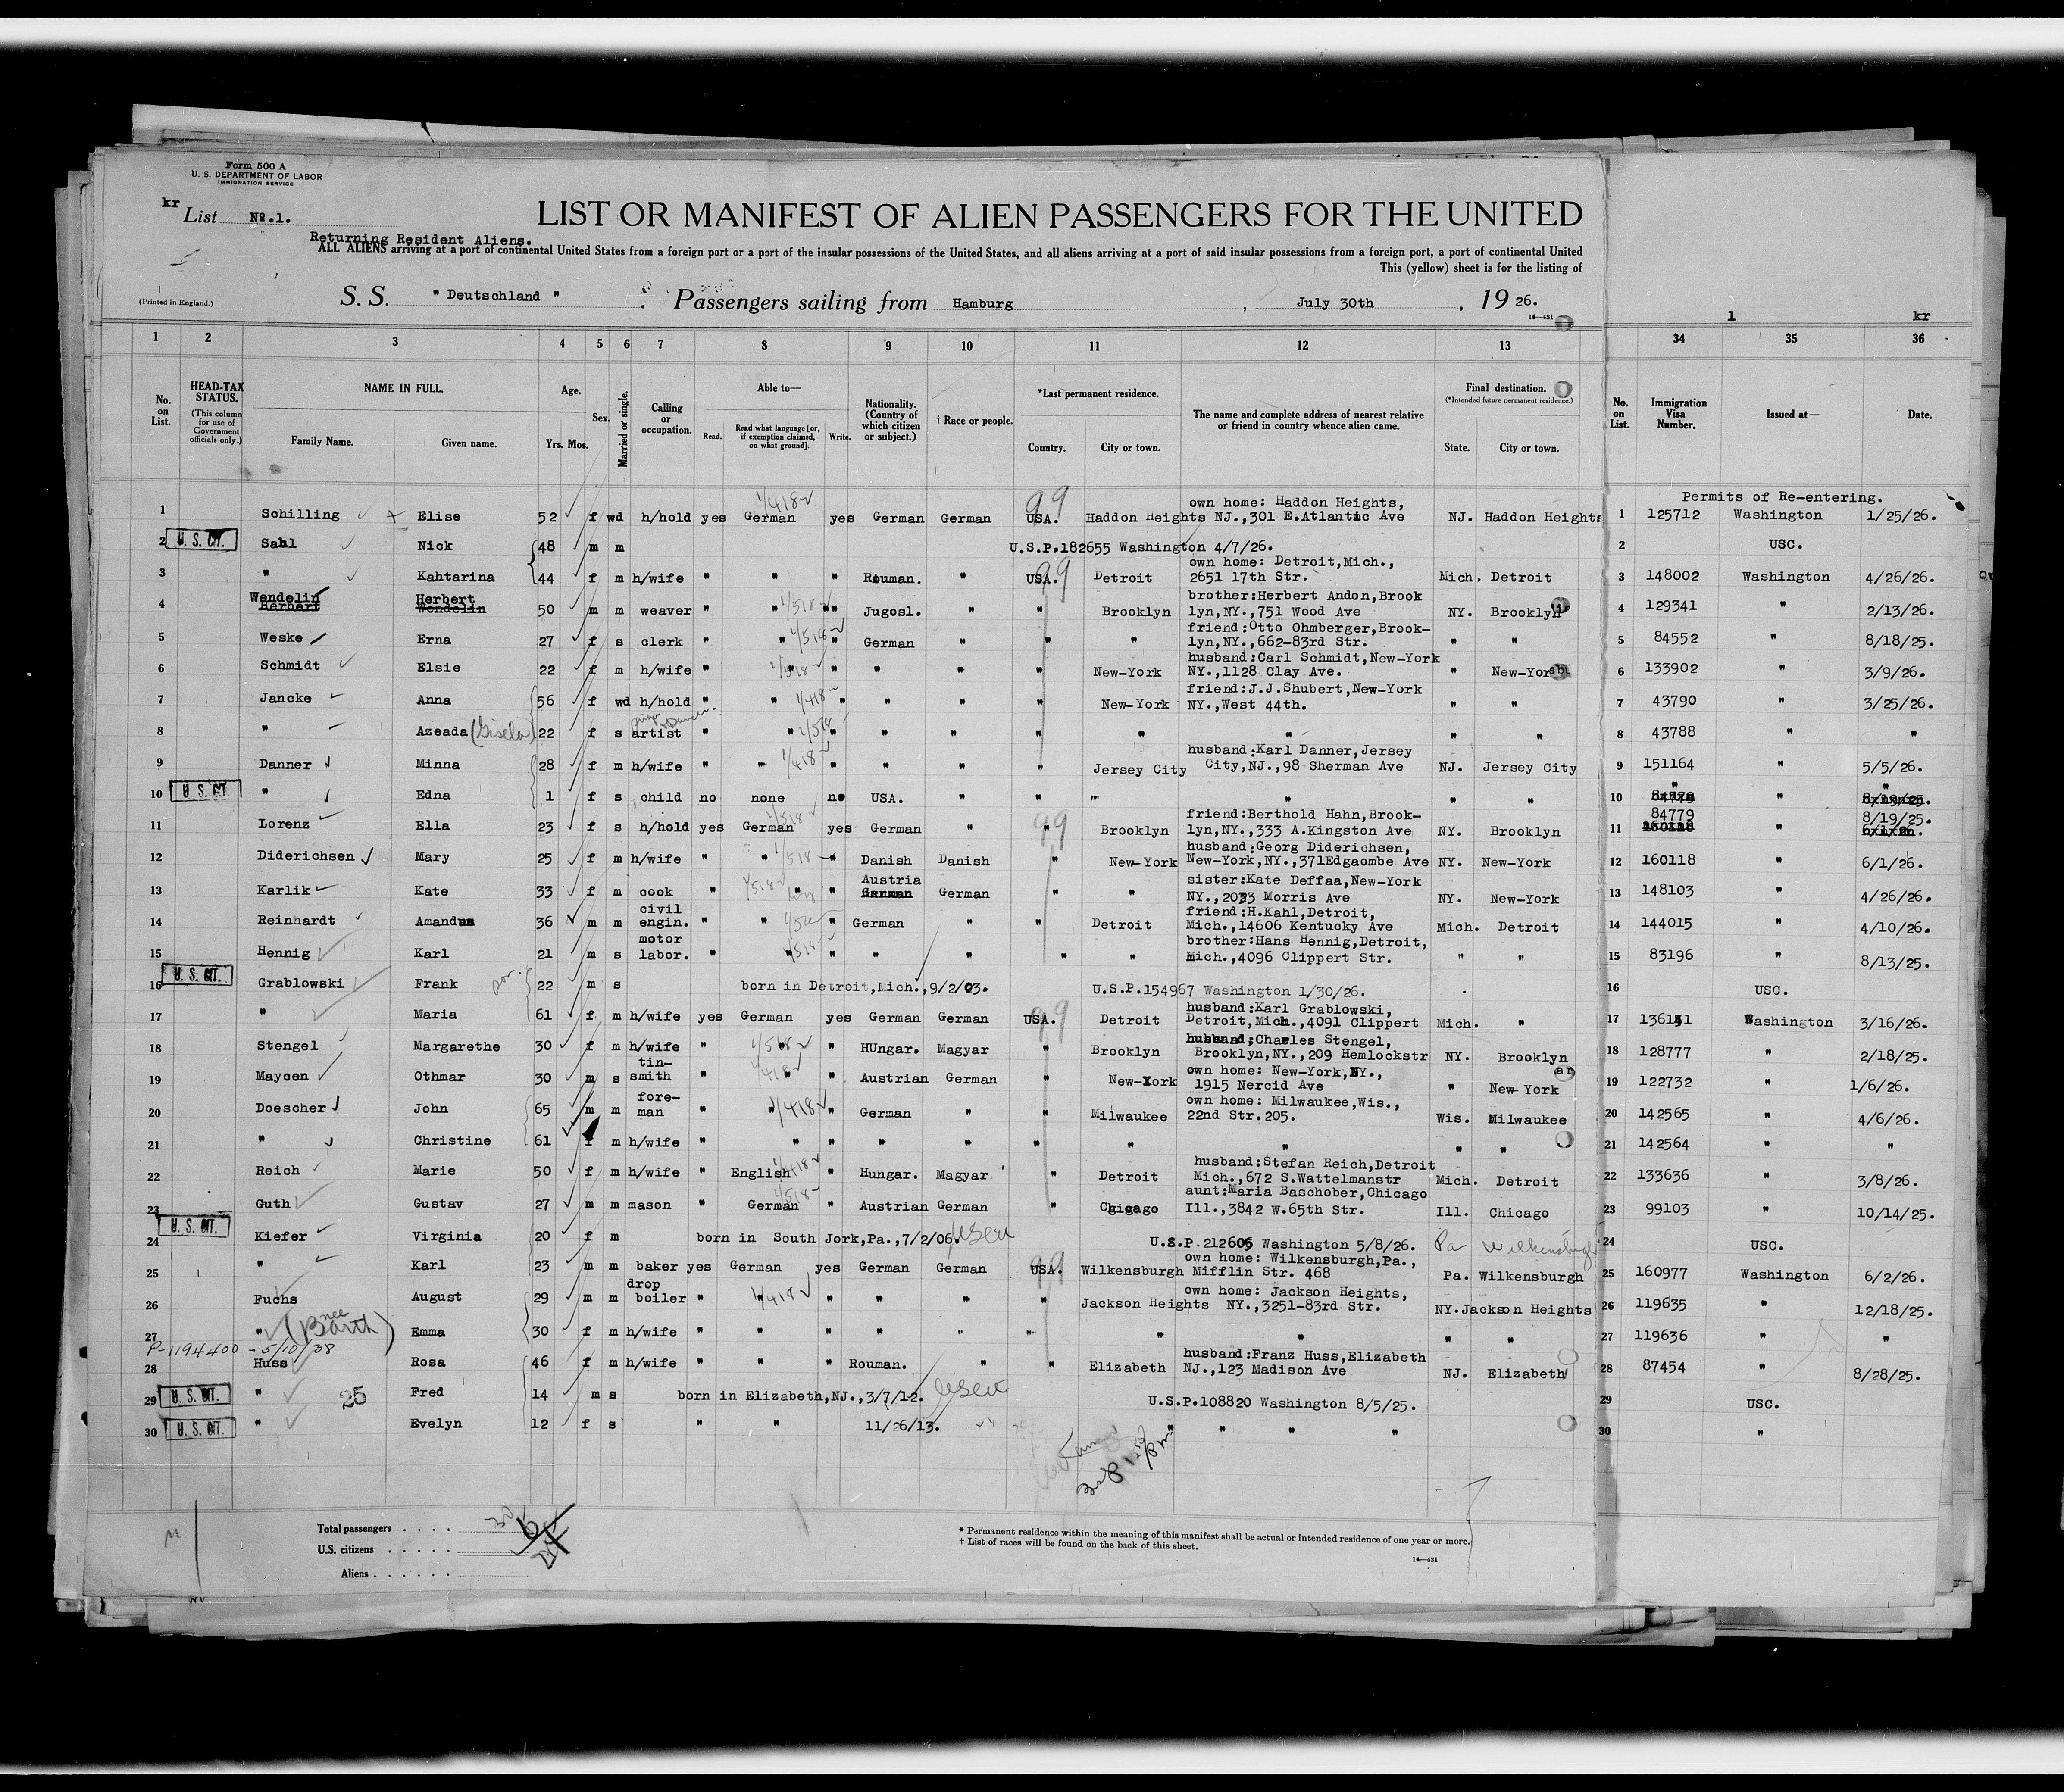 Form 500 A
U. S. DEPARTMENT OF LABOR
IMMIGRATION SERVICE
kr
List No.1.
LIST OR MANIFEST OF ALIEN PASSENGERS FOR THE UNITED
Returning Resident Aliens.
ALL ALIENS arriving at a port of continental United States from a foreign port or a port of the insular possessions of the United States, and all aliens arriving at a port of said insular possessions from a foreign port, a port of continental United
This (yellow) sheet is for the listing of
(Printed in England.)
S. S. " Deutschland " Passengers sailing from Hamburg, July 30th, 19 26.
14—431
1 kr
1 2 3 4 5 6 7 8 9 10 11 12 13 34 35 36
No. on List.
HEAD-TAX STATUS.
(This column for use of Government officials only.)
NAME IN FULL.
Family Name. Given name.
Age.
Yrs. Mos.
Sex.
Married or single.
Calling or occupation.
Able to—
Read. Read what language [or, if exemption claimed, on what ground]. Write.
Nationality. (Country of which citizen or subject.)
† Race or people.
*Last permanent residence.
Country. City or town.
The name and complete address of nearest relative or friend in country whence alien came.
Final destination.
(*Intended future permanent residence.)
State. City or town.
No. on List.
Immigration Visa Number.
Issued at—
Date.
Permits of Re-entering.
own home: Haddon Heights,
1 Schilling Elise 52 f wd h/hold yes German yes German German USA. Haddon Heights NJ.,301 E.Atlantic Ave NJ. Haddon Heights 1 125712 Washington 1/25/26.
2 U. S. CIT. Sahl Nick 48 m m U.S.P.182655 Washington 4/7/26. 2 USC.
own home: Detroit,Mich.,
3 " Kahtarina 44 f m h/wife " " " Rouman. " USA. Detroit 2651 17th Str. Mich. Detroit 3 148002 Washington 4/26/26.
Wendelin Herbert brother:Herbert Andon,Brook
4 Herbert Wendelin 50 m m weaver " " " Jugosl. " " Brooklyn lyn,NY.,751 Wood Ave NY. Brooklyn 4 129341 " 2/13/26.
friend:Otto Ohmberger,Brook-
5 Weske Erna 27 f s clerk " " " German " " " lyn,NY.,662-83rd Str. " " 5 84552 " 8/18/25.
husband:Carl Schmidt,New-York
6 Schmidt Elsie 22 f m h/wife " " " " " " New-York NY.,1128 Clay Ave. " New-York 6 133902 " 3/9/26.
friend:J.J.Shubert,New-York
7 Jancke Anna 56 f wd h/hold " " " " " " New-York NY.,West 44th. " " 7 43790 " 3/25/26.
8 " Azeada (Gisela) 22 f s artist " " " " " " " " " " 8 43788 " "
husband:Karl Danner,Jersey
9 Danner Minna 28 f m h/wife " " " " " " Jersey City City,NJ.,98 Sherman Ave NJ. Jersey City 9 151164 " 5/5/26.
10 U. S. CIT. " Edna 1 f s child no none no USA. " " " " " " 10 84779 " " 8/19/25.
friend:Berthold Hahn,Brook- 84779 8/19/25.
11 Lorenz Ella 23 f s h/hold yes German yes German " " Brooklyn lyn,NY.,333 A.Kingston Ave NY. Brooklyn 11 160118 " 6/1/26.
husband:Georg Diderichsen,
12 Diderichsen Mary 25 f m h/wife " " " Danish Danish " New-York New-York,NY.,371Edgaombe Ave NY. New-York 12 160118 " 6/1/26.
Austria sister:Kate Deffaa,New-York
13 Karlik Kate 33 f m cook " " " German German " " NY.,2033 Morris Ave NY. New-York 13 148103 " 4/26/26.
civil friend:H.Kahl,Detroit,
14 Reinhardt Amandus 36 m m engin. " " " German " " Detroit Mich.,14606 Kentucky Ave Mich. Detroit 14 144015 " 4/10/26.
motor brother:Hans Hennig,Detroit,
15 Hennig Karl 21 m s labor. " " " " " " " Mich.,4096 Clippert Str. " " 15 83196 " 8/13/25.
16 U. S. CIT. Grablowski Frank 22 m s born in Detroit,Mich.,9/2/03. U.S.P.154967 Washington 1/30/26. 16 USC.
husband:Karl Grablowski,
17 " Maria 61 f m h/wife yes German yes German German USA. Detroit Detroit,Mich.,4091 Clippert Mich. " 17 136151 Washington 3/16/26.
husband:Charles Stengel,
18 Stengel Margarethe 30 f m h/wife " " " HUngar. Magyar " Brooklyn Brooklyn,NY.,209 Hemlockstr NY. Brooklyn 18 128777 " 2/18/25.
tin- own home: New-York,NY.,
19 Maycen Othmar 30 m s smith " " " Austrian German " New-York 1915 Nercid Ave " New York 19 122732 " 1/6/26.
fore- own home: Milwaukee,Wis.,
20 Doescher John 65 m m man " " " German " " Milwaukee 22nd Str.205. Wis. Milwaukee 20 142565 " 4/6/26.
21 " Christine 61 f m h/wife " " " " " " " " " " 21 142564 " "
husband:Stefan Reich,Detroit
22 Reich Marie 50 f m h/wife " English " Hungar. Magyar " Detroit Mich.,672 S.Wattelmanstr Mich. Detroit 22 133636 " 3/8/26.
aunt:Maria Baschober,Chicago
23 Guth Gustav 27 m m mason " German " Austrian German " Chicago Ill.,3842 W.65th Str. Ill. Chicago 23 99103 " 10/14/25.
24 U. S. CIT. Kiefer Virginia 20 f m born in South Jork,Pa.,7/2/06. U.S.P.212605 Washington 5/8/26. Pa Wilkensburgh 24 USC.
own home: Wilkensburgh,Pa.,
25 " Karl 23 m m baker yes German yes German German USA. Wilkensburgh Mifflin Str. 468 Pa. Wilkensburgh 25 160977 Washington 6/2/26.
drop own home: Jackson Heights,
26 Fuchs August 29 m m boiler " " " " " " Jackson Heights NY.,3251-83rd Str. NY. Jackson Heights 26 119635 " 12/18/25.
27 " (nee Barth) Emma 30 f m h/wife " " " " " " " " " " 27 119636 " "
P-1194400 - 5/10/38
husband:Franz Huss,Elizabeth
28 Huss Rosa 46 f m h/wife " " " Rouman. " " Elizabeth NJ.,123 Madison Ave NJ. Elizabeth 28 87454 " 8/28/25.
29 U. S. CIT. " 25 Fred 14 m s born in Elizabeth,NJ.,3/7/12. U.S.P.108820 Washington 8/5/25. 29 USC.
30 U. S. CIT. " Evelyn 12 f s " " 11/26/13. " " " " 30 "
Total passengers . . . .
U.S. citizens . . . . .
Aliens . . . . . .
* Permanent residence within the meaning of this manifest shall be actual or intended residence of one year or more.
† List of races will be found on the back of this sheet.
14—431